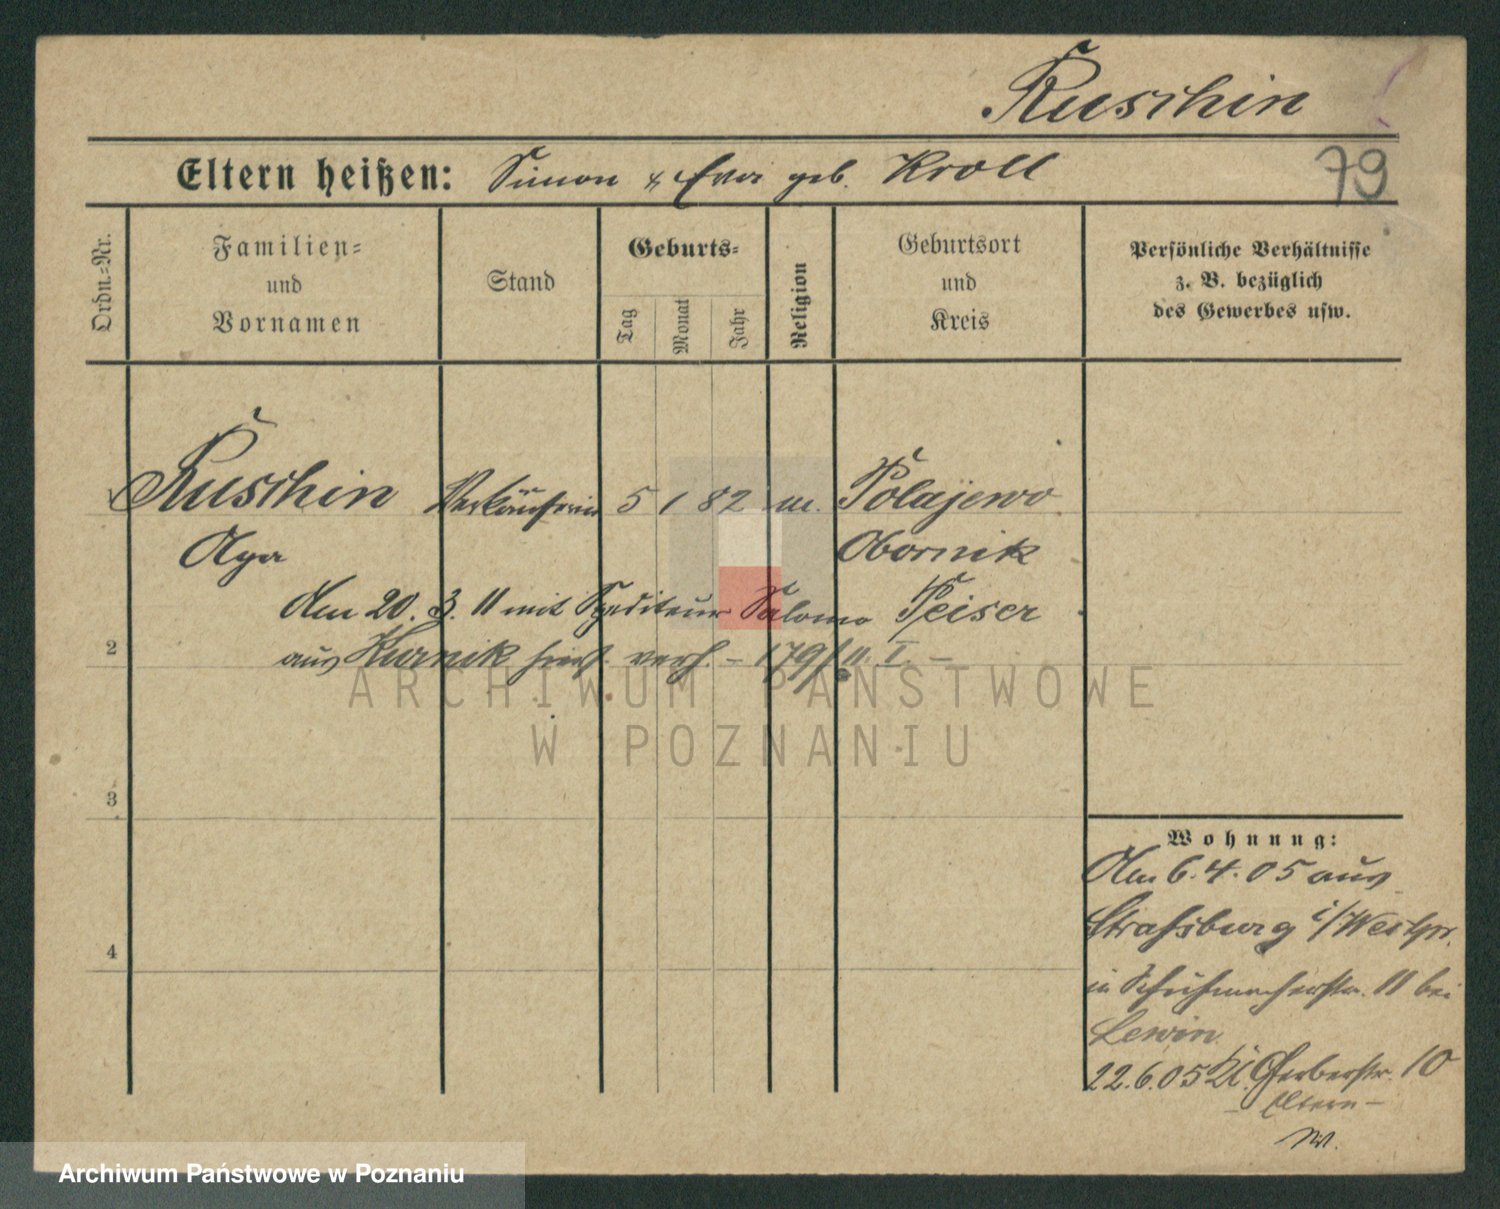 Ruschin
Eltern heißen: Simon & Eva geb. Kroll
79
Ordn.=Nr.
Familien=
und
Vornamen
Stand
Geburts=
Tag
Monat
Jahr
Religion
Geburtsort
und
Kreis
Persönliche Verhältnisse
z. B. bezüglich
des Gewerbes usw.
Ruschin Verkäuferin 5 1 82 m. Polajewo
Olga Obornik
Am 20. 3. 11 mit Spediteur Salomo Peiser
2
aus Kurnik hier verh. – 179/11. I. –
ARCHIWUM PAŃSTWOWE
W POZNANIU
3
4
Wohnung:
Am 6. 4. 05 aus
Strassburg i/Westpr.
in Schuhmacherstr. 11 bei
Lewin.
22. 6. 05 Kl. Gerberstr. 10
– Eltern –
Archiwum Państwowe w Poznaniu